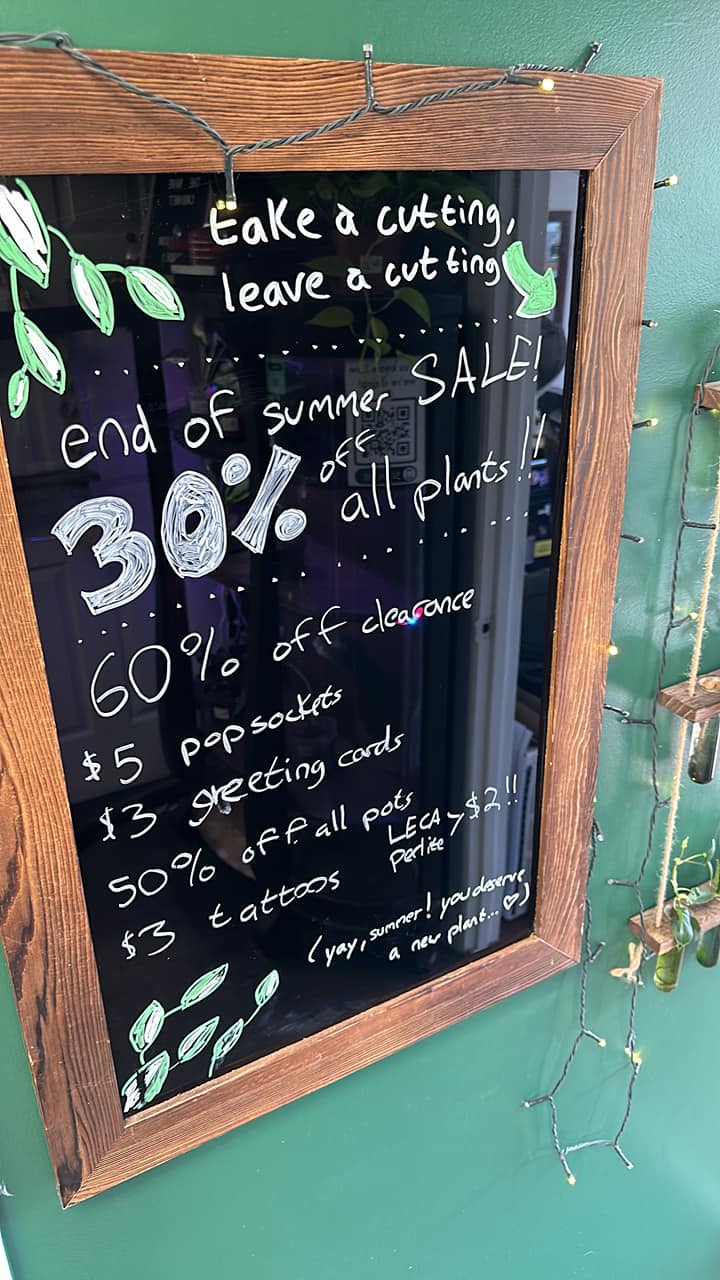 take a cutting,
leave a cutting
end of summer SALE!
30% off all plants!!
60% off clearance
$5 popsockets
$3 greeting cards
50% off all pots
$3 tattoos
LECA
Perlite > $2!!
(yay, summer! you deserve
a new plant... ♡)